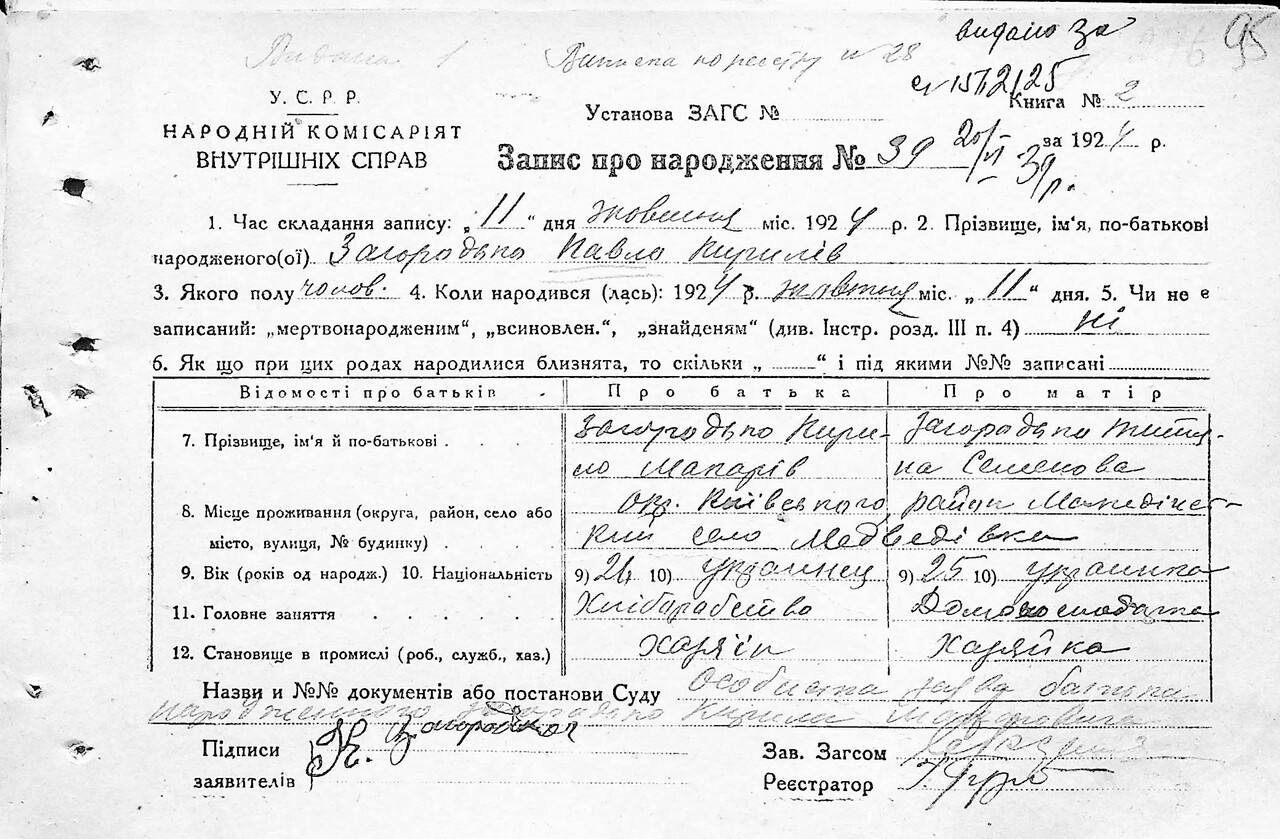 видано за 95
Видана 1 Виписка по реєстру № 28
15/12/25
У. С. Р. Р.
Установа ЗАГС № Книга № 2
НАРОДНІЙ КОМІСАРІЯТ
ВНУТРІШНІХ СПРАВ
Запис про народження № 39 за 1924 р.
39 р.
1. Час складання запису: „11“ дня жовтня міс. 1924 р. 2. Прізвище, ім'я, по-батькові
народженого(ої) Загородько Павло Кирилів
3. Якого полу чолов. 4. Коли народився (лась): 1924 р. жовтня міс. „11“ дня. 5. Чи не є
записаний: „мертвонародженим“, „всиновлен.“, „знайденям“ (див. Інстр. розд. III п. 4) ні
6. Як що при цих родах народилися близнята, то скільки „ “ і під якими №№ записані
Відомості про батьків Про батька Про матір
7. Прізвище, ім'я й по-батькові Загородько Кири- Загородько
ло Макарів на Семенова
8. Місце проживання (округа, район, село або окр. Київського, район
місто, вулиця, № будинку) село Медведівка
9. Вік (років од народж.) 10. Національність 9) 26 10) украинец 9) 25 10) украинка
11. Головне заняття Хліборобство
12. Становище в промислі (роб., служб., хаз.) Хазяїн Хазяйка
Назви и №№ документів або постанови Суду Особиста заява батька
народженного Загородько Кирила Макаровича
Підписи К. Загородько Зав. Загсом
заявителів Реєстратор